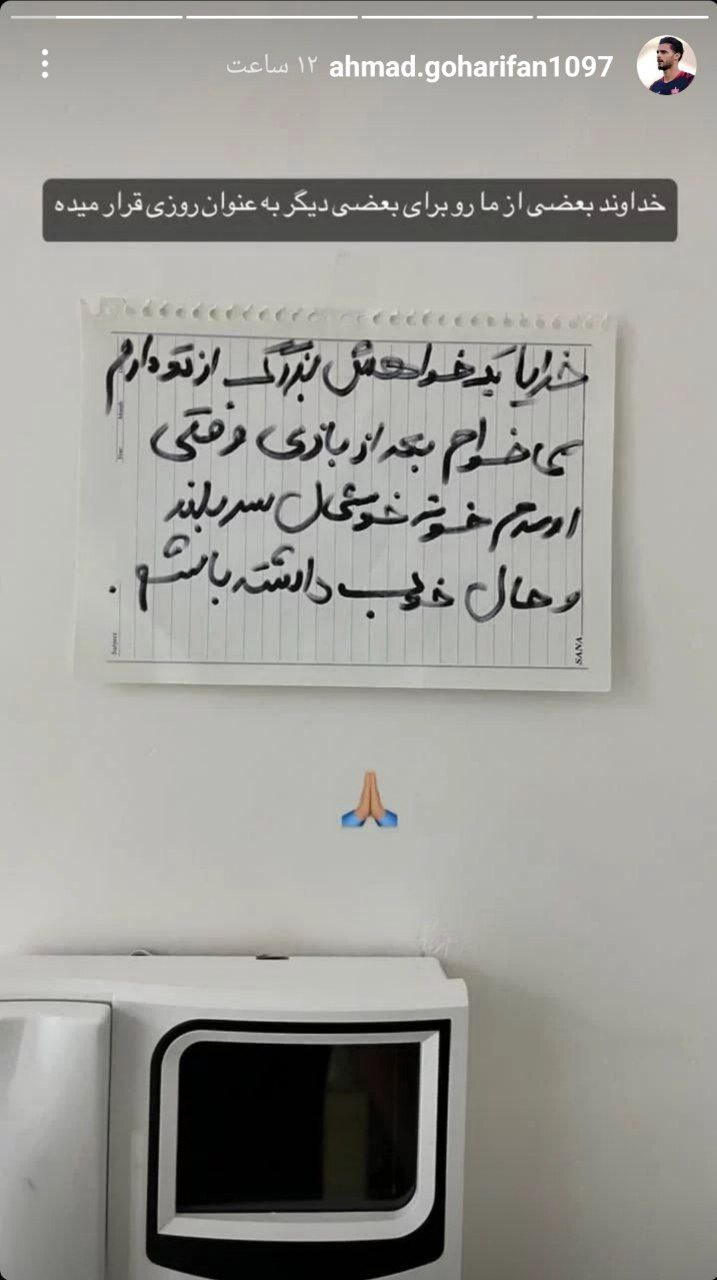 ahmad.goharifan1097 ۱۲ ساعت
خداوند بعضی از ما رو برای بعضی دیگر به عنوان روزی قرار میده
خدایا یه خواهش بزرگ از تو دارم
می خواهم بعد از بازی وقتی
اومدم خونه خوشحال سربلند
و حال خوب داشته باشم .
Subject
SANA